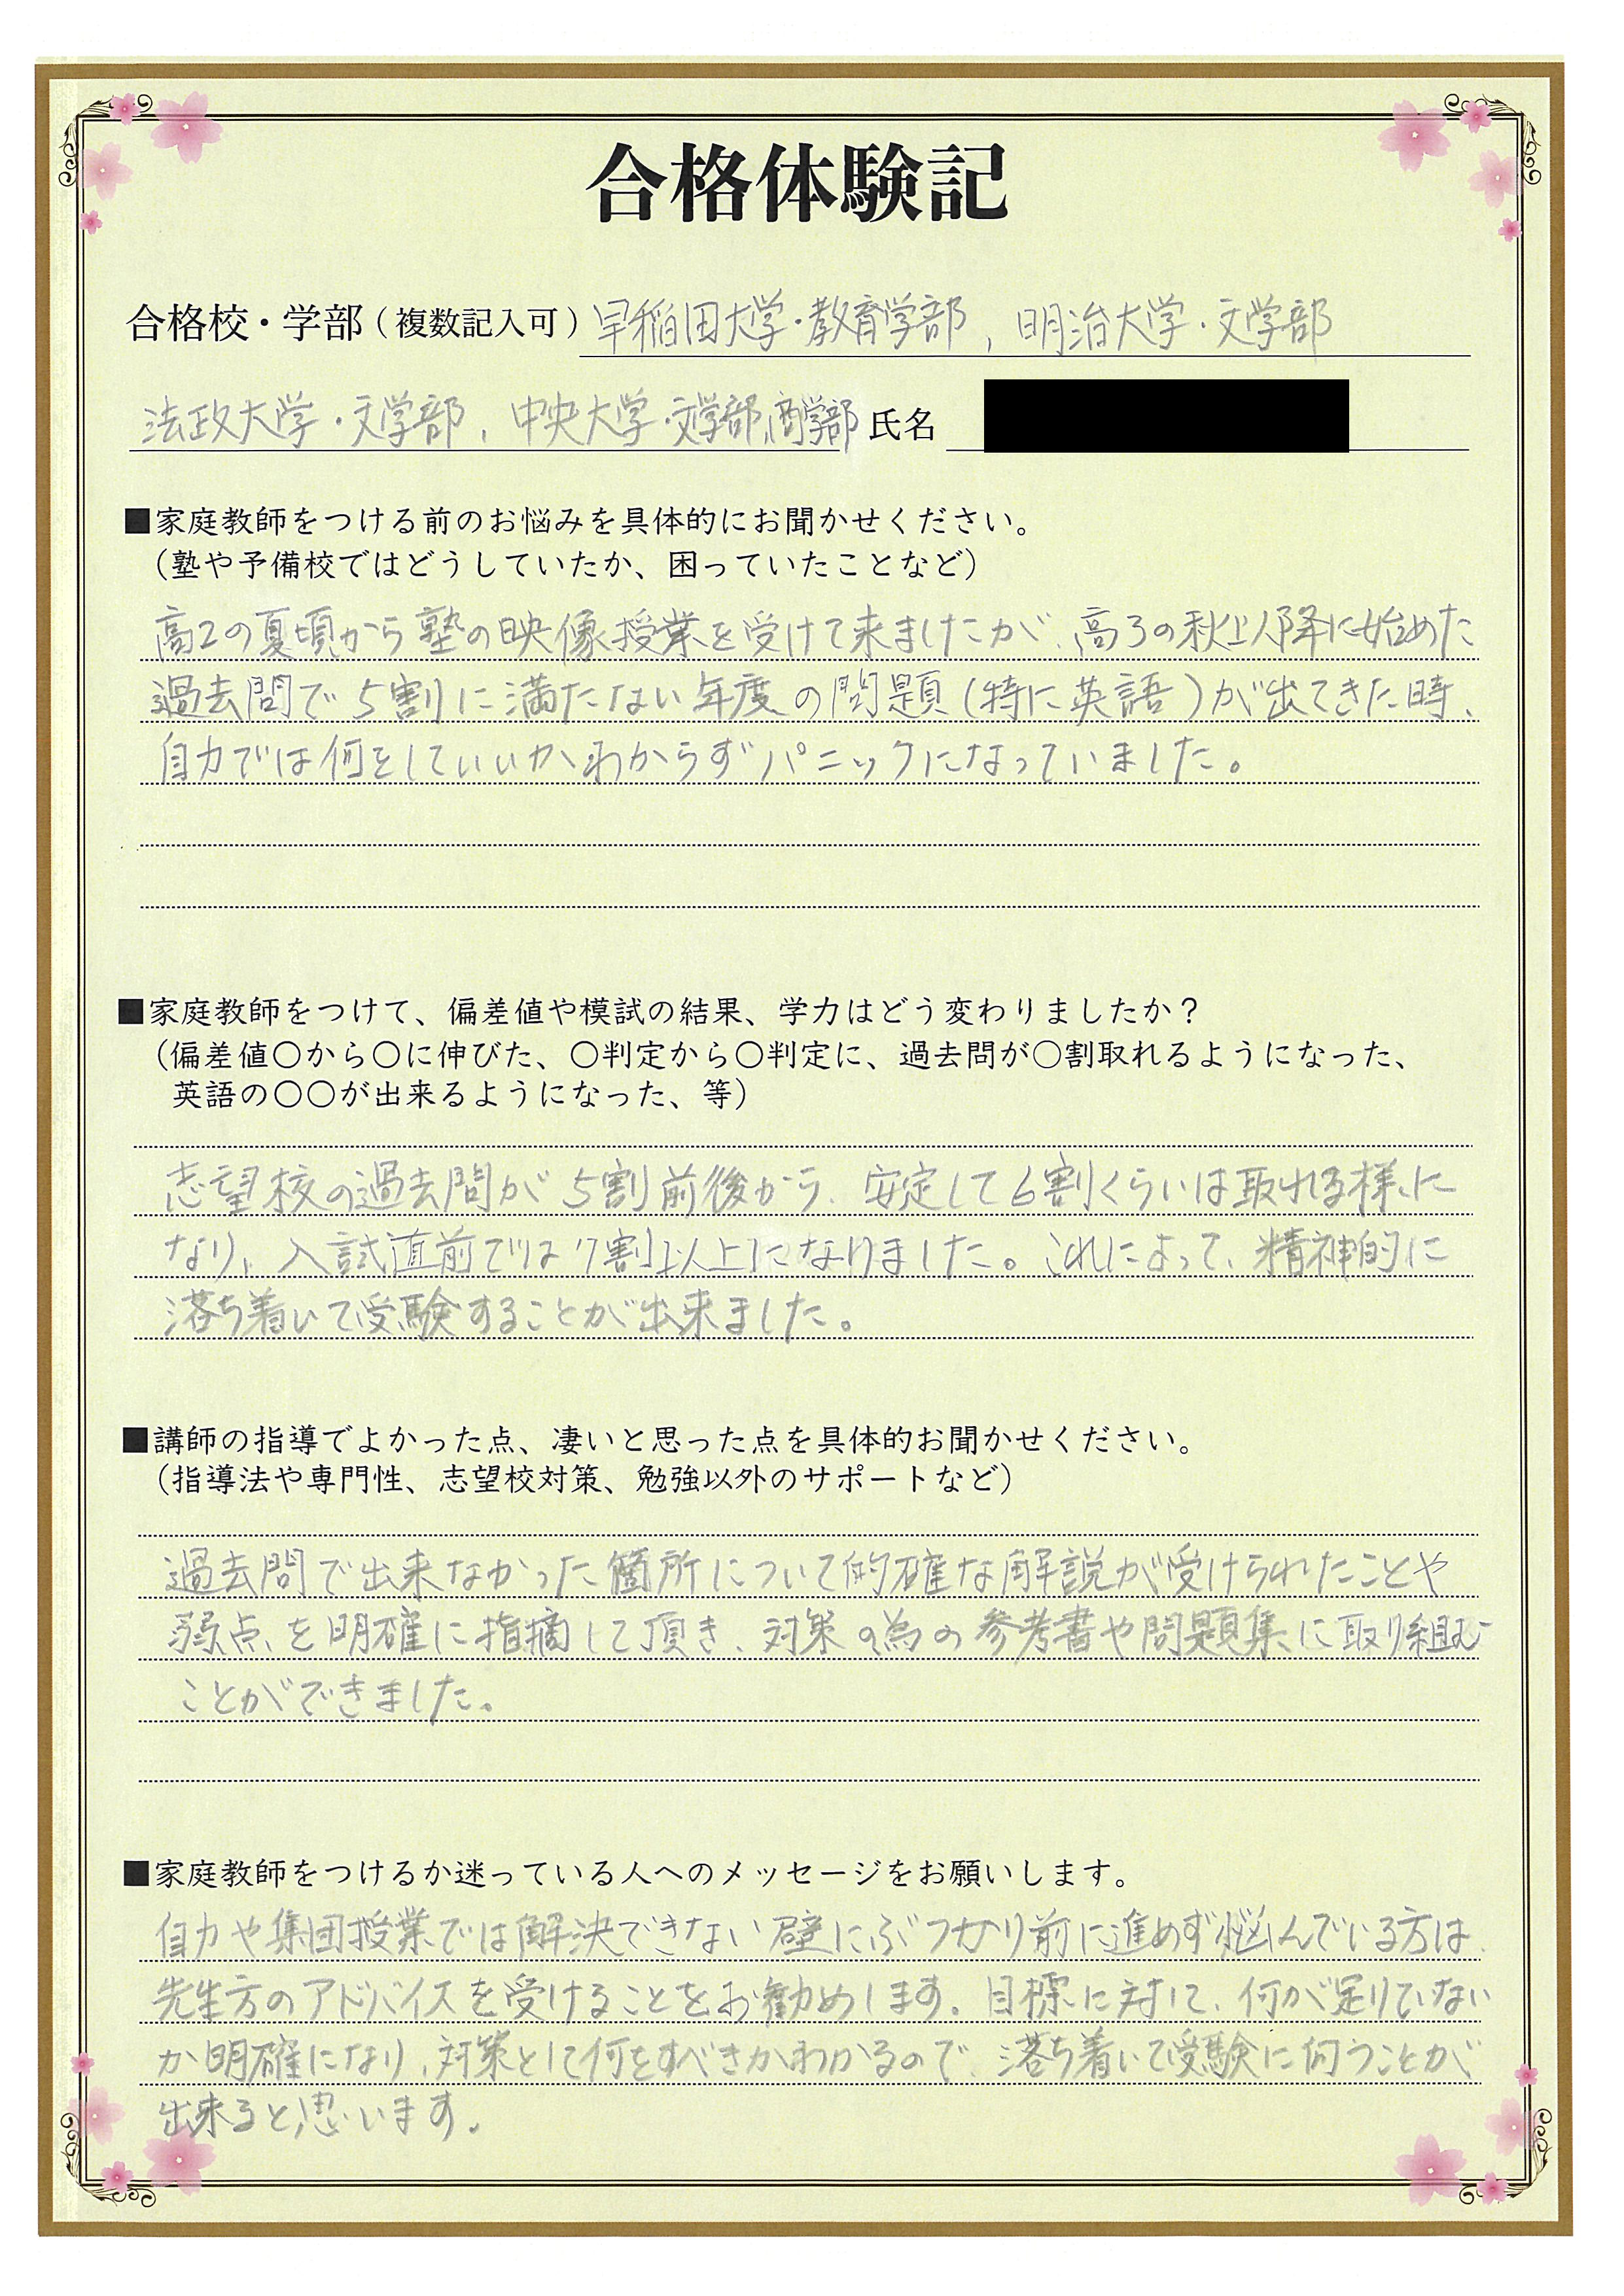 合格体験記
合格校・学部(複数記入可) 早稲田大学・教育学部, 明治大学・文学部
法政大学・文学部, 中央大学・文学部,商学部 氏名
■家庭教師をつける前のお悩みを具体的にお聞かせください。
(塾や予備校ではどうしていたか、困っていたことなど)
高2の夏頃から塾の映像授業を受けて来ましたが、高3の秋以降に始めた
過去問で5割に満たない年度の問題(特に英語)が出てきた時、
自力では何をしていいかわからずパニックになっていました。
■家庭教師をつけて、偏差値や模試の結果、学力はどう変わりましたか？
(偏差値〇から〇に伸びた、〇判定から〇判定に、過去問が〇割取れるようになった、
英語の〇〇が出来るようになった、等)
志望校の過去問が5割前後から、安定して6割くらいは取れる様に
なり、入試直前では7割以上になりました。これによって、精神的に
落ち着いて受験することが出来ました。
■講師の指導でよかった点、凄いと思った点を具体的お聞かせください。
(指導法や専門性、志望校対策、勉強以外のサポートなど)
過去問で出来なかった箇所について的確な解説が受けられたことや
弱点を明確に指摘して頂き、対策の為の参考書や問題集に取り組む
ことができました。
■家庭教師をつけるか迷っている人へのメッセージをお願いします。
自力や集団授業では解決できない壁にぶつかり前に進めず悩んでいる方は、
先生方のアドバイスを受けることをお勧めします。目標に対して、何が足りていない
か明確になり、対策として何をすべきかわかるので、落ち着いて受験に向うことが
出来ると思います。